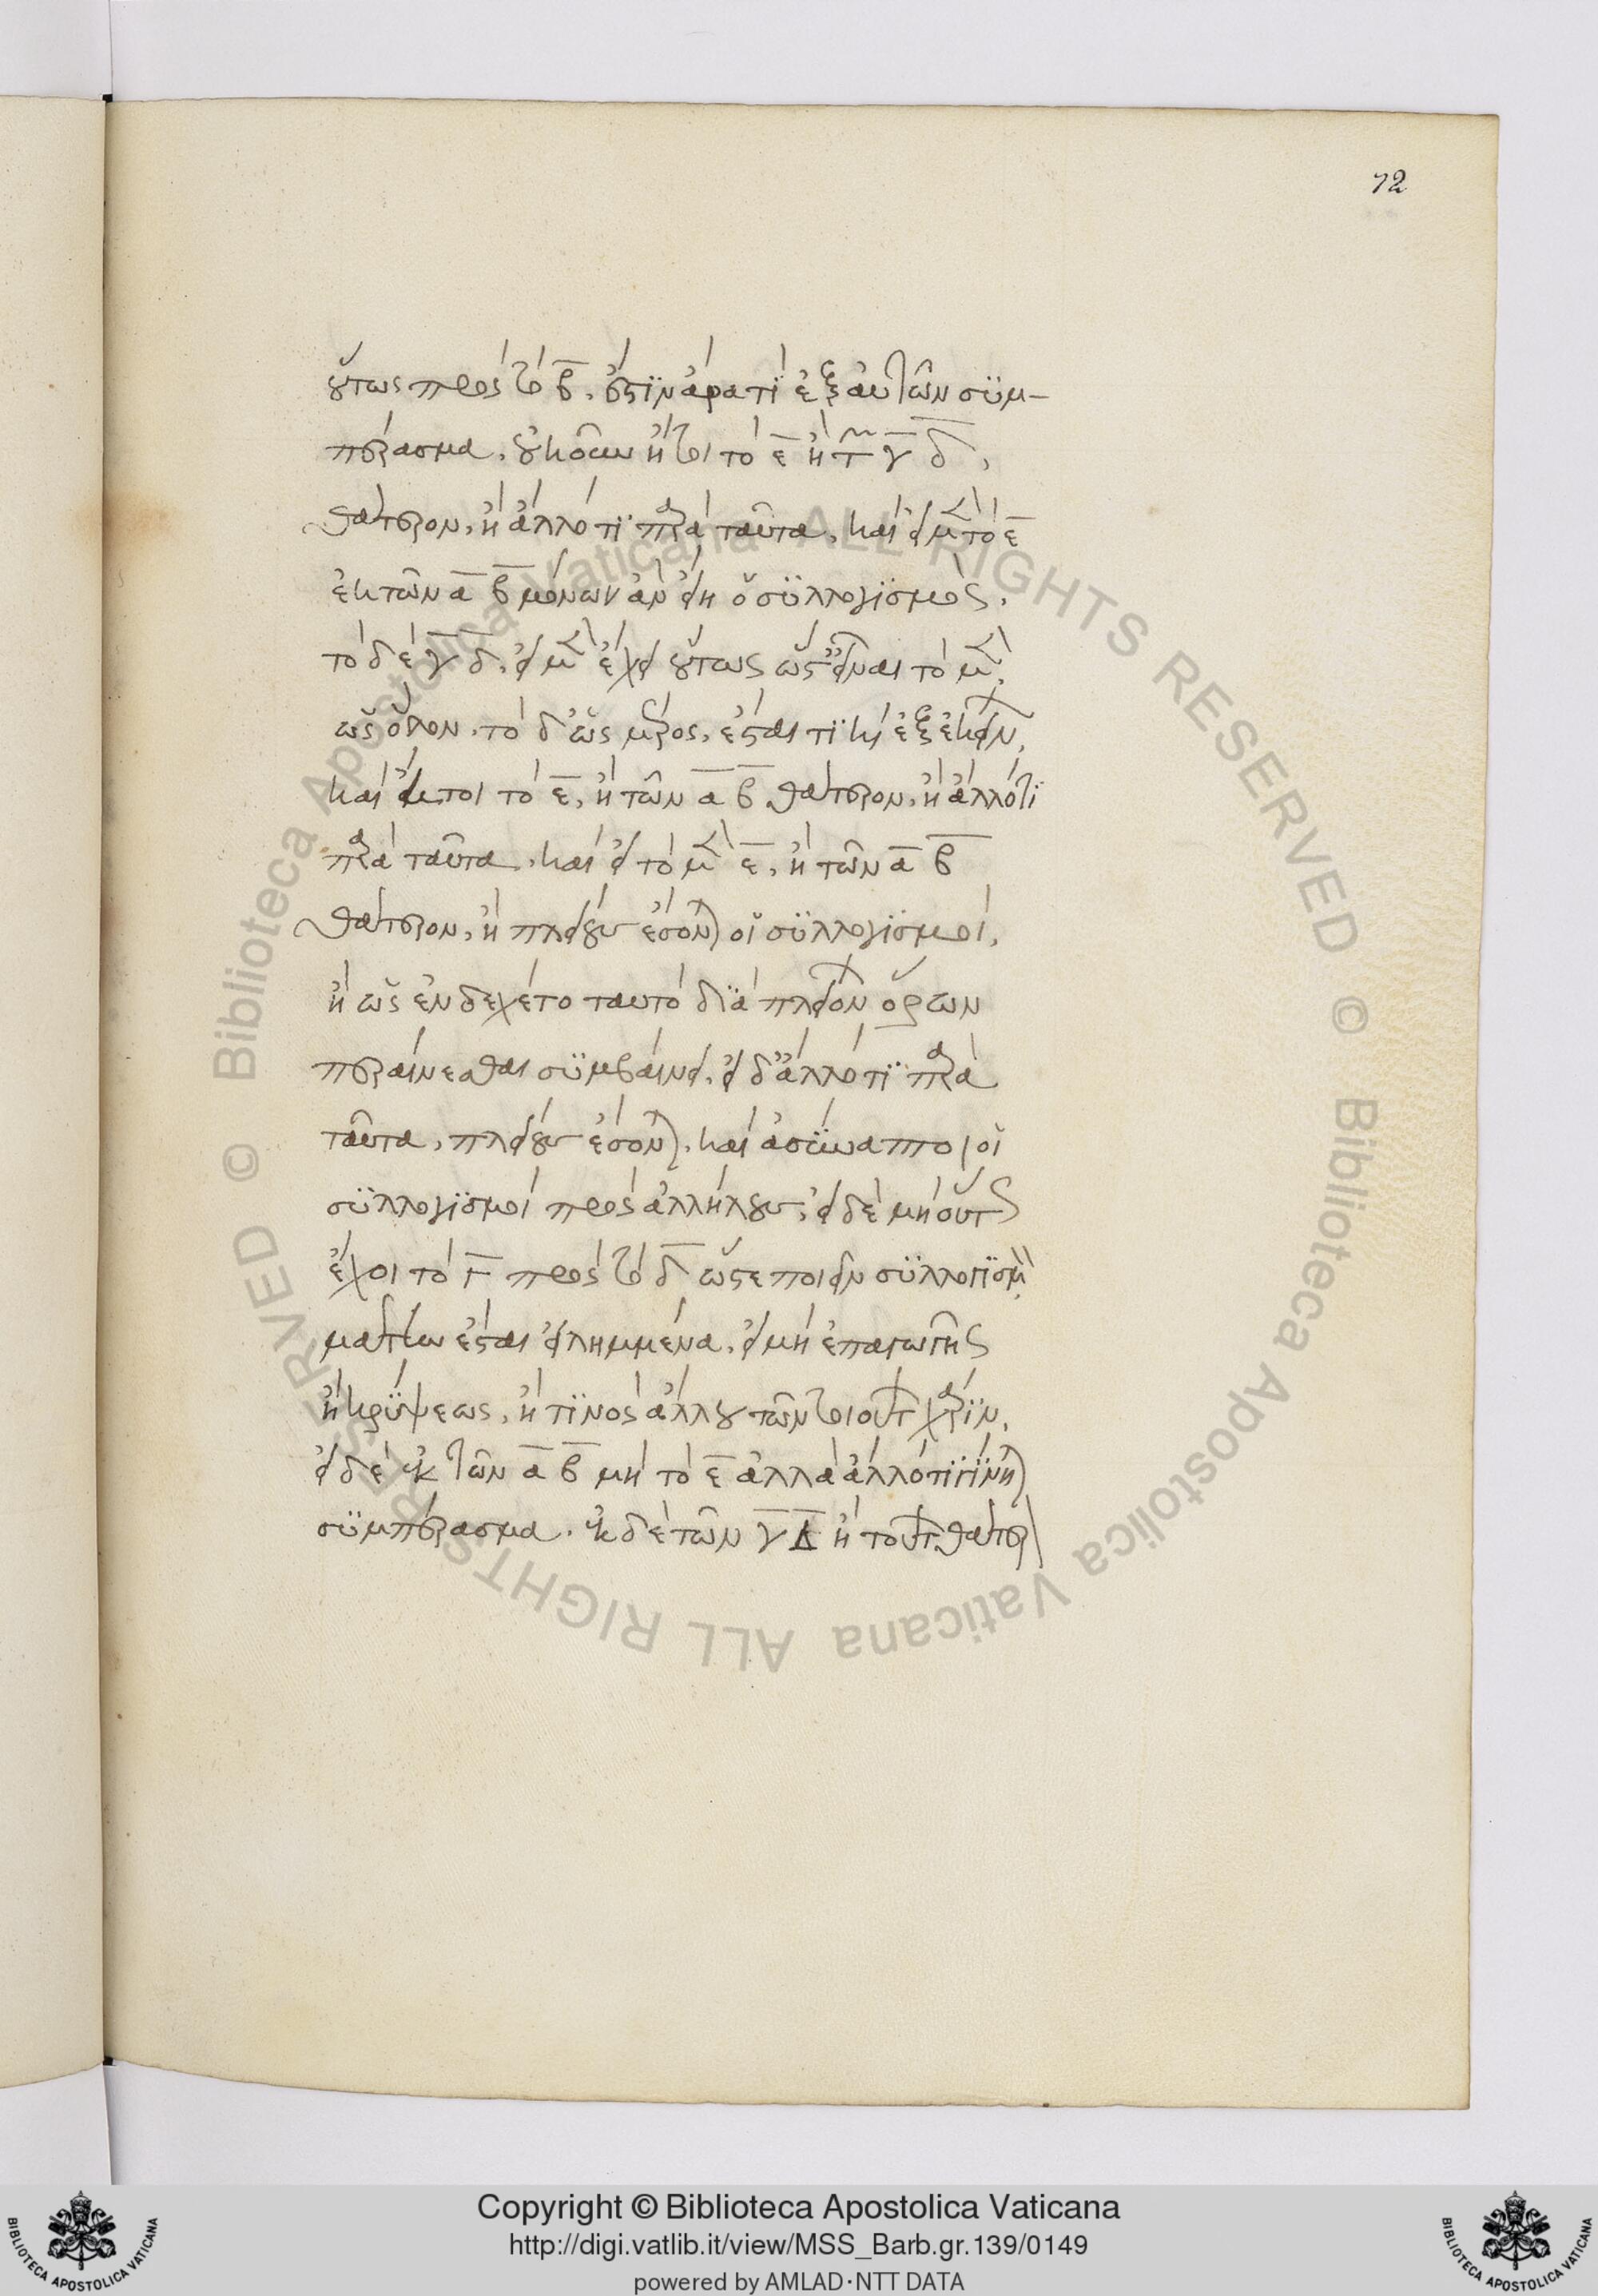 72
οὕτως πρὸς τὸ β̅. ἔστιν ἄρα τὶ ἐξ αὐτῶν συμ-
πέρασμα. οὐκοῦν ἤτοι τὸ ε̅ ἢ τῶν γ̅ δ̅,
θάτερον, ἢ ἄλλο τι παρὰ ταῦτα. καὶ εἰ μὲν τὸ ε̅
ἐκ τῶν α̅ β̅ μόνων ἂν εἴη ὁ συλλογισμός.
τὸ δὲ γ̅ δ̅. εἰ μὲν ἔχει οὕτως ὥστ' εἶναι τὸ μὲν,
ὡς ὅλον. τὸ δ' ὡς μέρος. ἔσται τι καὶ ἐξ ἐκείνων,
καὶ ἤτοι τὸ ε̅, ἢ τῶν α̅ β̅ θάτερον. ἢ ἄλλό τι
παρὰ ταῦτα. καὶ εἰ τὸ μὲν ε̅, ἢ τῶν α̅ β̅
θάτερον, ἢ πλείους ἔσονται οἱ συλλογισμοὶ,
ἢ ὡς ἐνδέχετο ταυτὸ διὰ πλειόνων ὅρων
περαίνεσθαι συμβαίνει. εἰ δ' ἄλλό τι παρὰ
ταῦτα, πλείους ἔσονται. καὶ ἀσύναπτοι οἱ
συλλογισμοὶ πρὸς ἀλλήλους. εἰ δὲ μὴ οὕτως
ἔχοι τὸ Γ̅ πρὸς τὸ δ̅ ὥστε ποιεῖν συλλογισμὸν,
μάτην ἔσται εἰλημμένα. εἰ μὴ ἐπαγωγῆς
ἢ κρύψεως, ἤ τινος ἄλλου τῶν τοιούτων χάριν.
εἰ δὲ ἐκ τῶν α̅ β̅ μὴ τὸ ε̅ ἀλλὰ ἄλλό τι γίνηται
συμπέρασμα. ἐκ δὲ τῶν γ̅ Δ̅ ἢ τούτων θάτερον
Copyright © Biblioteca Apostolica Vaticana
http://digi.vatlib.it/view/MSS_Barb.gr.139/0149
powered by AMLAD·NTT DATA
BIBLIOTECA APOSTOLICA VATICANA
BIBLIOTECA APOSTOLICA VATICANA
© Biblioteca Apostolica Vaticana ALL RIGHTS RESERVED © Biblioteca Apostolica Vaticana ALL RIGHTS RESERVED